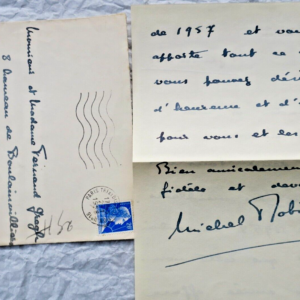 Monsieur et Madame Fernand Gregh
8 Hameau de Boulainvilliers
PARIS
de 1957 et vou
apporte tout ce
vous pouvez dési
d'heureux et d'
pour vous et les
Bien amicalement
fidèle et dev
Michel Robi